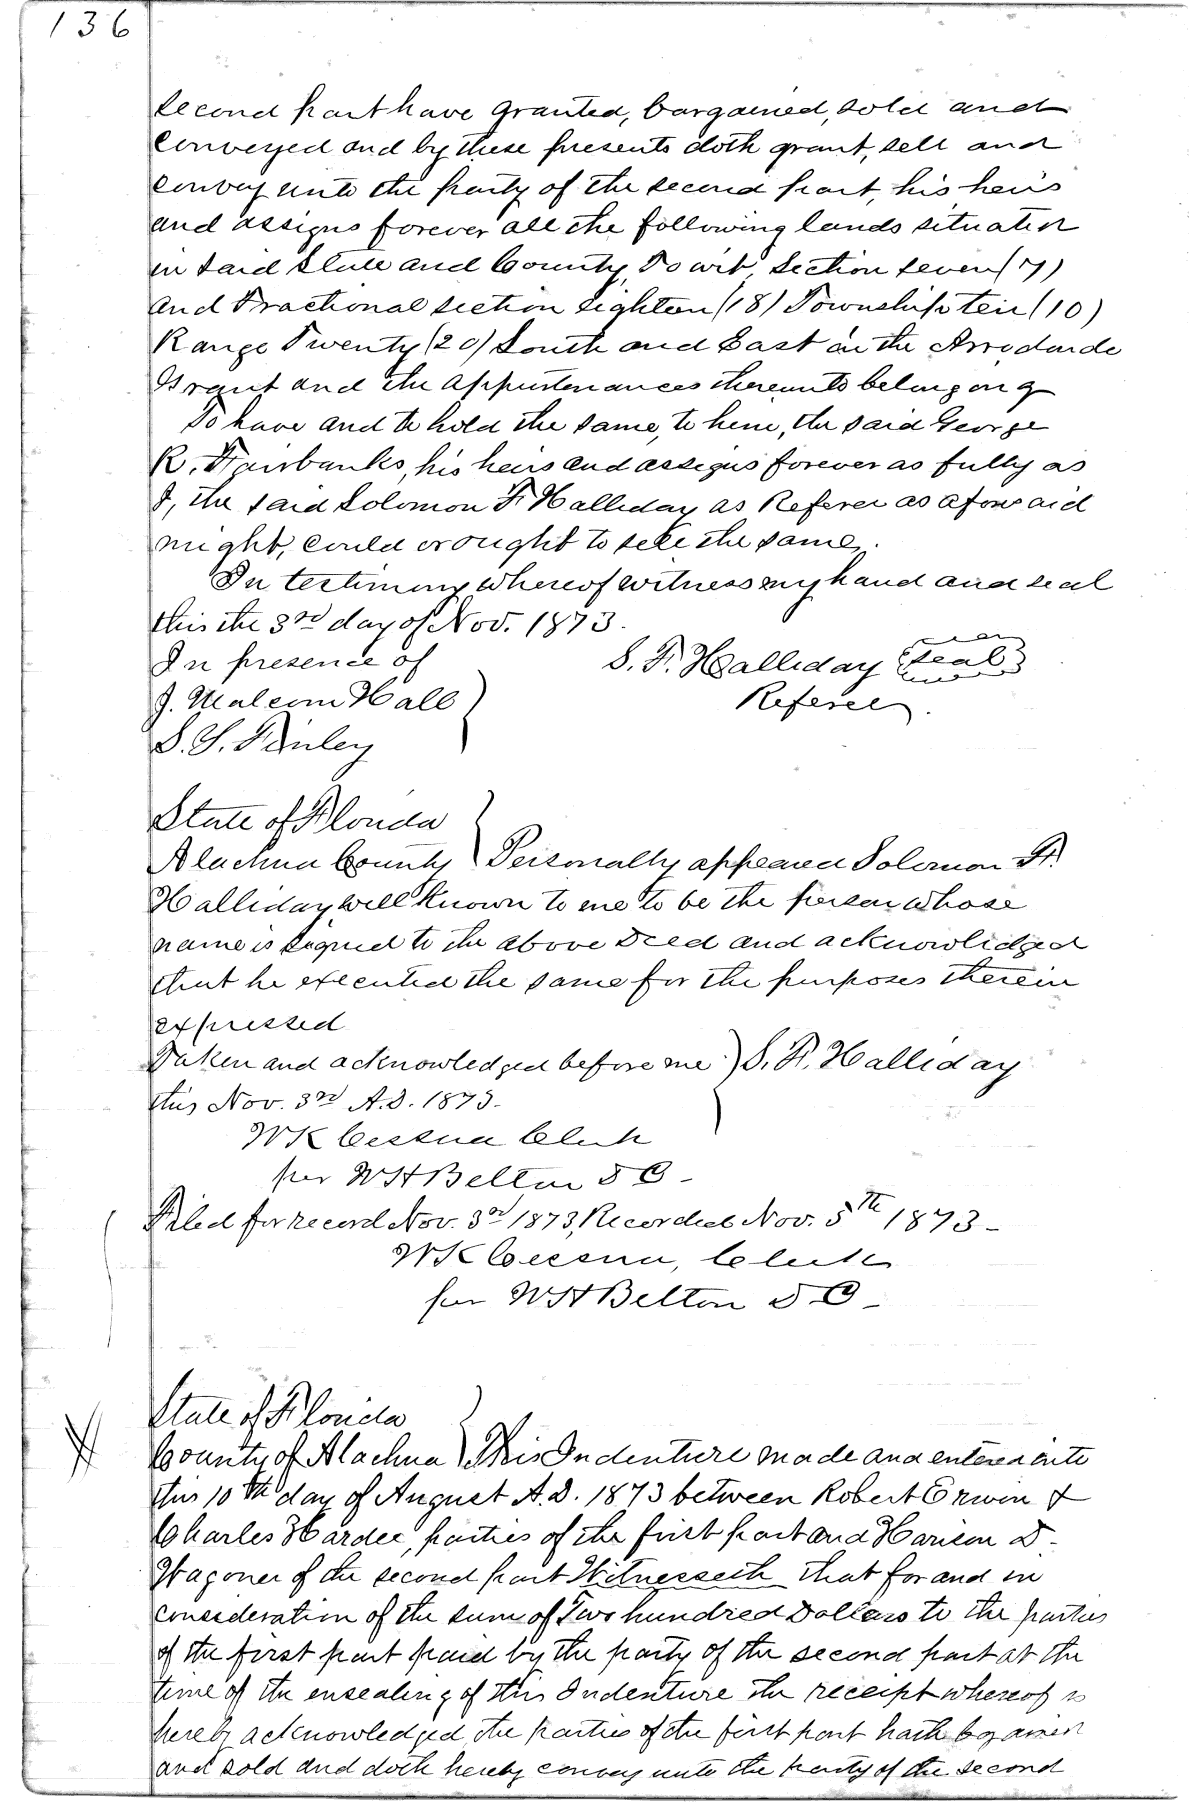 136
second part have granted, bargained, sold and
conveyed and by these presents doth grant, sell and
convey unto the party of the second part, his heirs
and assigns forever all the following lands situated
in said State and County, Towit, Section seven (7)
and Fractional section eighteen (18) Township ten (10)
Range Twenty (20) South and East in the Arredondo
Grant and the appurtenances thereunto belonging
To have and to hold the same, to him, the said George
R. Fairbanks, his heirs and assigns forever as fully as
I, the said Solomon F. Halliday as Referee as aforesaid
might, could or ought to sell the same.
In testimony whereof witness my hand and seal
this the 3rd day of Nov. 1873.
In presence of S. F. Halliday (Seal)
J. Malcom Hall } Referee.
S. S. Finley
State of Florida }
Alachua County } Personally appeared Solomon F.
Halliday well known to me to be the person whose
name is signed to the above Deed and acknowlidged
that he executed the same for the purposes therein
expressed
Taken and acknowledged before me } S. F. Halliday
this Nov. 3rd A.D. 1873.
WK Cessna Clerk
per WH Belton D C -
Filed for record Nov. 3rd 1873, Recorded Nov. 5th 1873 -
WK Cessna, Clerk
per WH Belton D C -
State of Florida }
County of Alachua } This Indenture made and entered into
this 10th day of August A.D. 1873 between Robert Erwin &
Charles Hardee, parties of the first part and Harison D.
Wagoner of the second part Witnesseth that for and in
consideration of the sum of Two hundred Dollars to the parties
of the first part paid by the party of the second part at the
time of the ensealing of this Indenture the receipt whereof is
hereby acknowledged, the parties of the first part hath bargained
and sold and doth hereby convey unto the party of the second